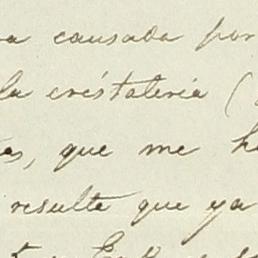 causada por
la crestateria (
que me
resulte que ya